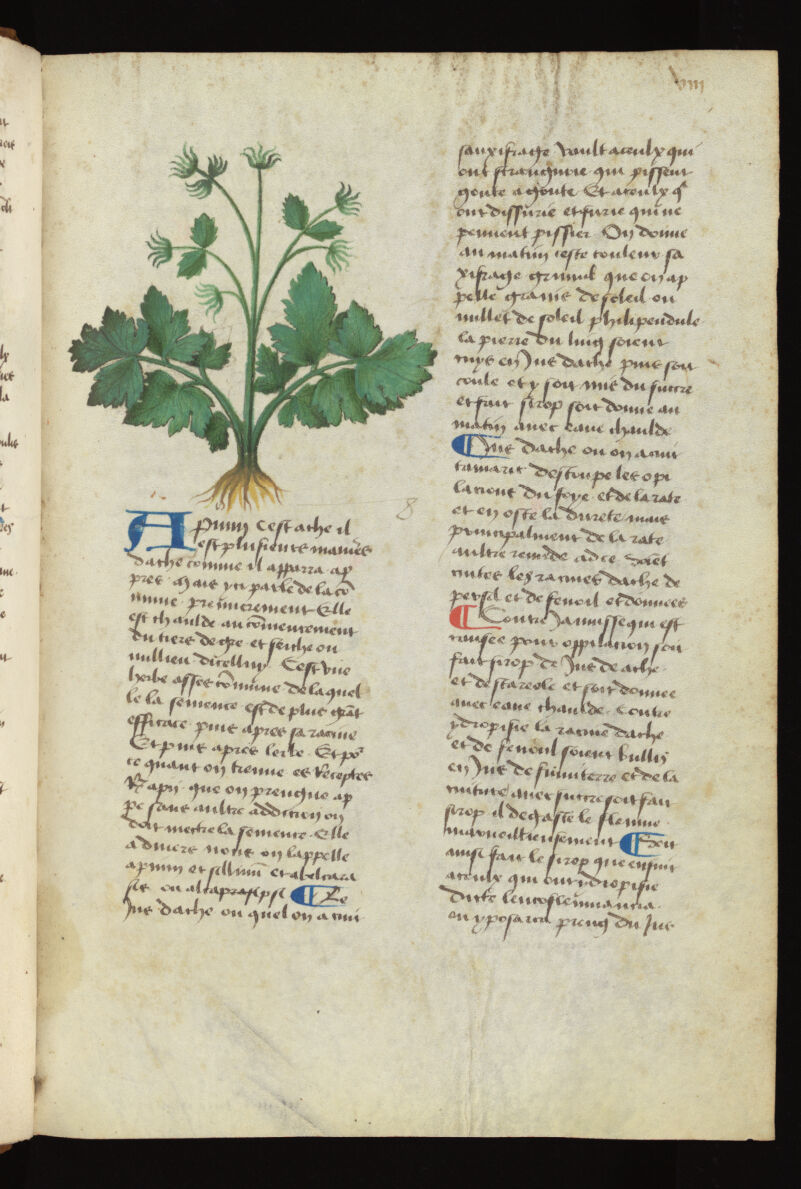 viii
Apium cest ache il
est plusieurs manieres
dache comme il apparra ap
pres. Mais yci parle de la cõ
mune. premierement Elle
est chaulde au cõmencement
du tiers degre et seiche ou
millieu dicelluy. Cest vne
herbe asses cõmune de laquel
le la semence est de plus grãt
efficace puis apres sa racine
Et puis apres lerbe. Et pos
ce quant on treuue es Receptes
R̃ apii que on prengne ap
pe sans aultre addicion on
doit mectre la semence. Elle
a diuers noms on lappelle
apium et sillinũ et
ou ¶ Le
Jus dache ou quel on a cuit
8
sauxifrage vault a ceulx qui
ont strangurie qui pissent
goute a goute Et a ceulx q̃
ont dissurie et furie qui ne
peuuent pissier On donne
au matin ceste couleur sa
xifrage grimil que on ap
pelle grains de soleil ou
millet de soleil philipendule
la pierre du linq soient
mys en Jus dache puis soit
coule et y soit mis du succre
et fait sirop soit donne au
matin auec eaue chaulde
¶ Jus dache ou on a cuit
tamaric destoupe les opi
lacions du foye et de la rate
et en oste la durete mais
principalment de la rate
aultre remede ad ce. soiẽt
cuites les racines dache de
persil et de fenoil et donnees
¶ Contre Jaunisse qui est
causee pour oppilacion soit
fait sirop de Jus de ache
et de scariole et soit donnee
auec eaue chaulde. Contre
ydropisie la racine dache
et de fenoul soient bullis
en Jus de fumiterre et de la
cuiture auec succre soit fait
sirop il degaste le fleume
merueilleusement ¶ Soit
ainsi fait le sirop que ensuit
a ceulx qui ont ydropisie
dicte leucofleumancia
ou yposarca prens du Jus